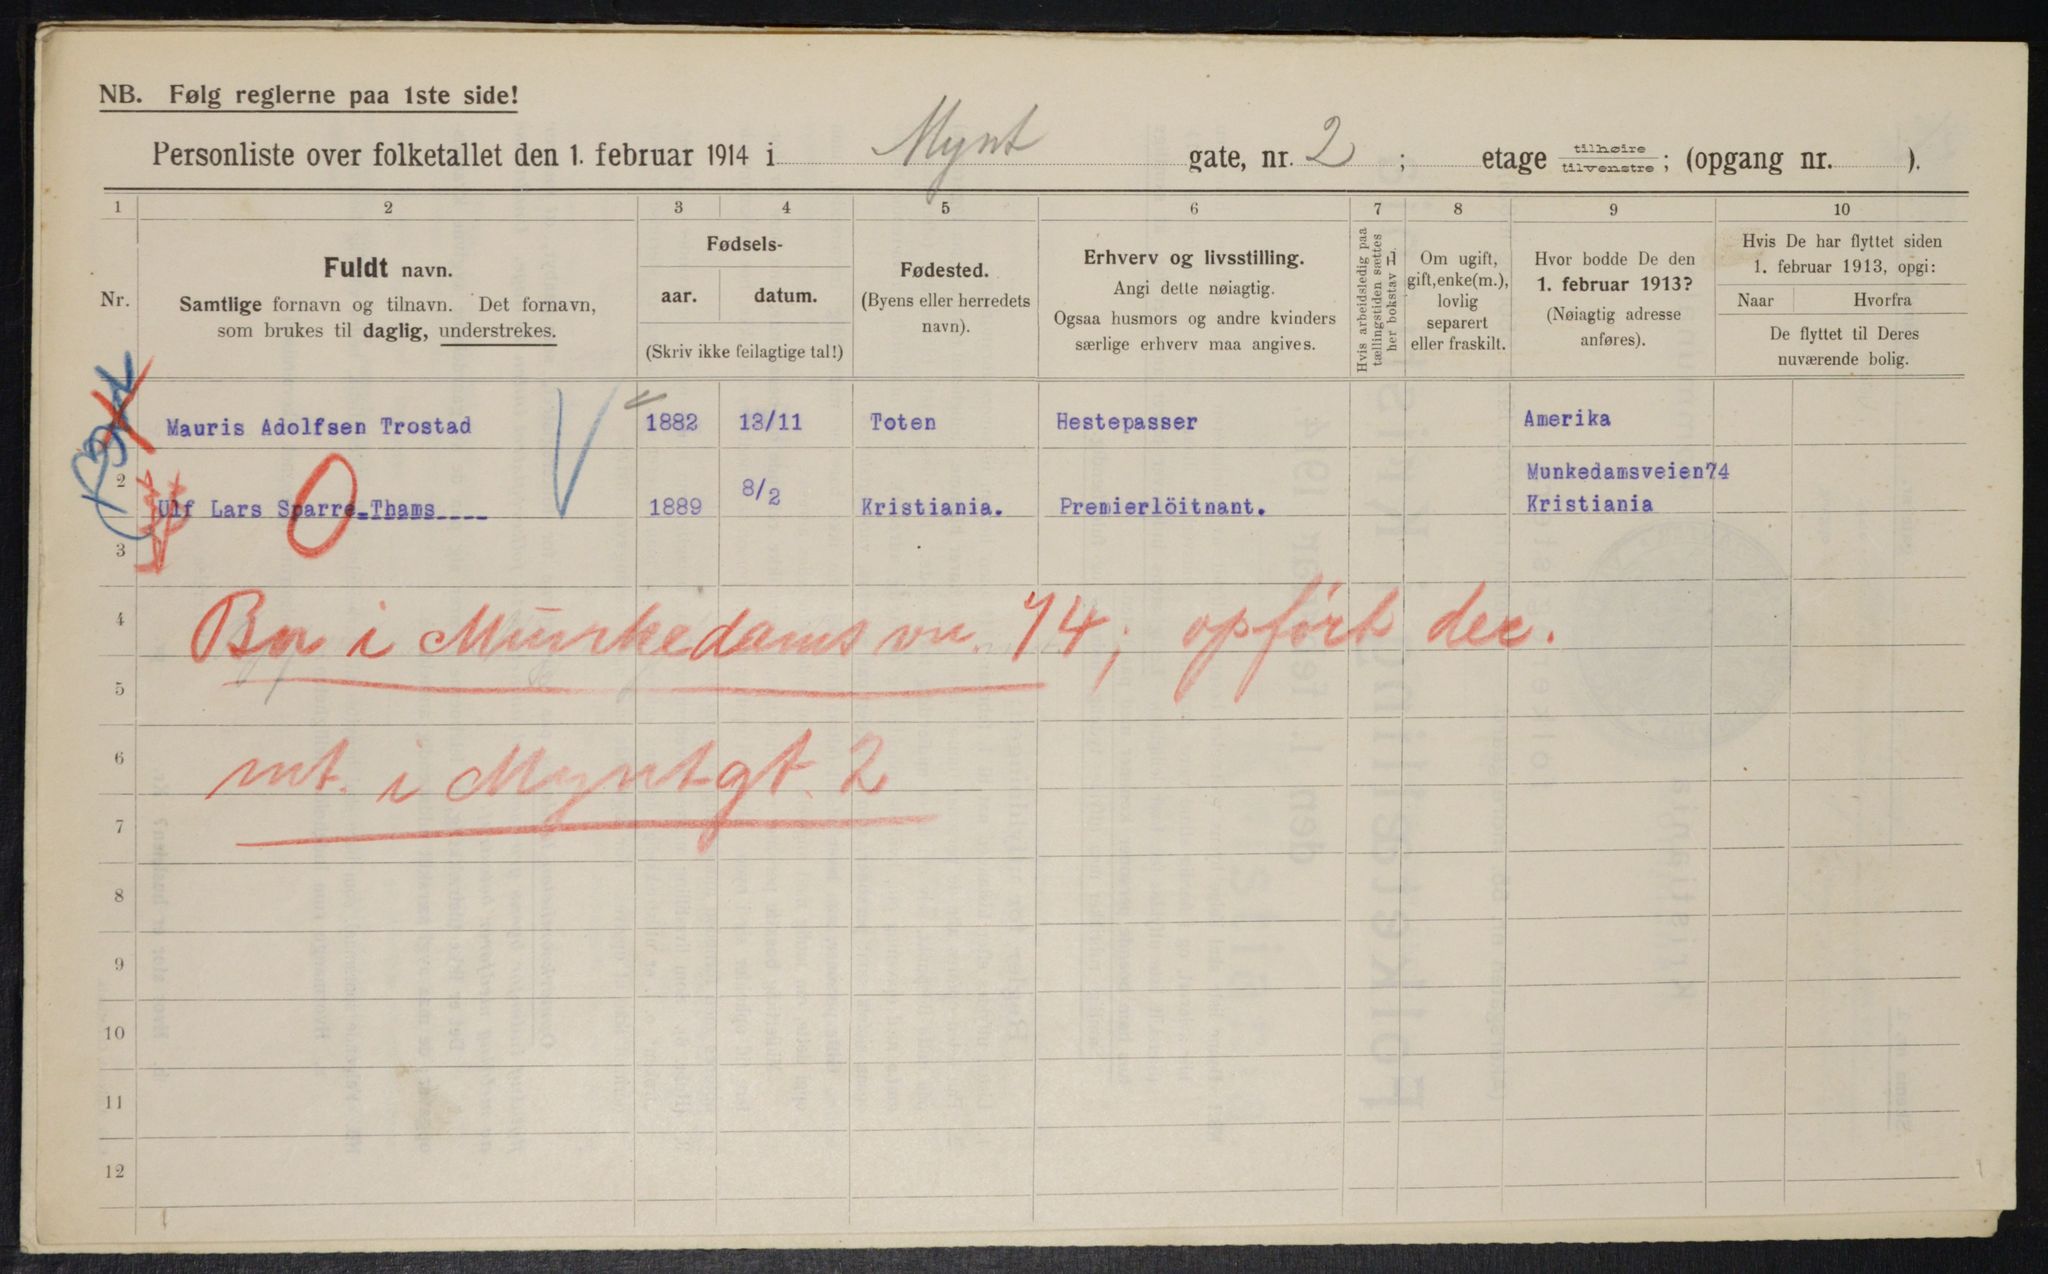 NB. Følg reglerne paa 1ste side!
Personliste over folketallet den 1. februar 1914 i Mynt gate, nr. 2 ; etage tilhøire tilvenstre ; (opgang nr. ).
1 2 3 4 5 6 7 8 9 10
Nr.
Fuldt navn.
Samtlige fornavn og tilnavn. Det fornavn,
som brukes til daglig, understrekes.
Fødsels-
aar. datum.
(Skriv ikke feilagtige tal!)
Fødested.
(Byens eller herredets
navn).
Erhverv og livsstilling.
Angi dette nøiagtig.
Ogsaa husmors og andre kvinders
særlige erhverv maa angives.
Hvis arbeidsledig paa
tællingstiden sættes
her bokstav L.
Om ugift,
gift, enke(m.),
lovlig
separert
eller fraskilt.
Hvor bodde De den
1. februar 1913?
(Nøiagtig adresse
anføres).
Hvis De har flyttet siden
1. februar 1913, opgi:
Naar Hvorfra
De flyttet til Deres
nuværende bolig.
Mauris Adolfsen Trostad 1882 13/11 Toten Hestepasser Amerika
2 Munkedamsveien74
Ulf Lars Sparre-Thams---- 1889 8/2 Kristiania. Premierlöitnant. Kristiania
3
4 Bor i Munkedamsvn. 74; opført der.
5
6 mt. i Myntgt. 2
7
8
9
10
11
12